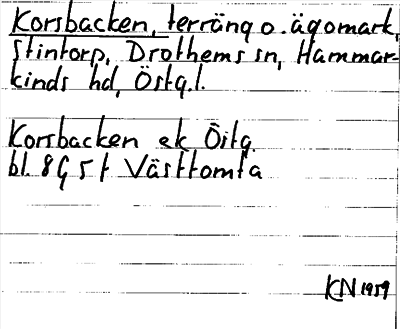 Korsbacken, terräng o. ägomark,
Stintorp, Drothems sn, Hammar-
kinds hd, Östg.l.
Korsbacken ek Östg.
bl. 8G 5f Västtomta
KN 1959